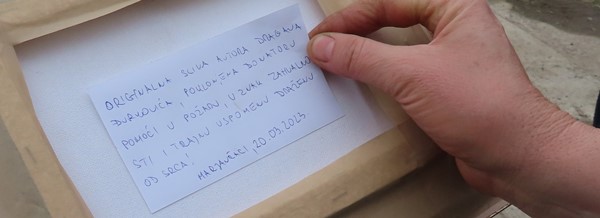 ORIGINALNA SLIKA AUTORA DRAGANA
ĐURKOVIĆA, POKLONJENA DONATORU
POMOĆI U POŽARU, U ZNAK ZAHVALNO
STI I TRAJNU USPOMENU DRAŽENU
OD SRCA!
20.05.2023.